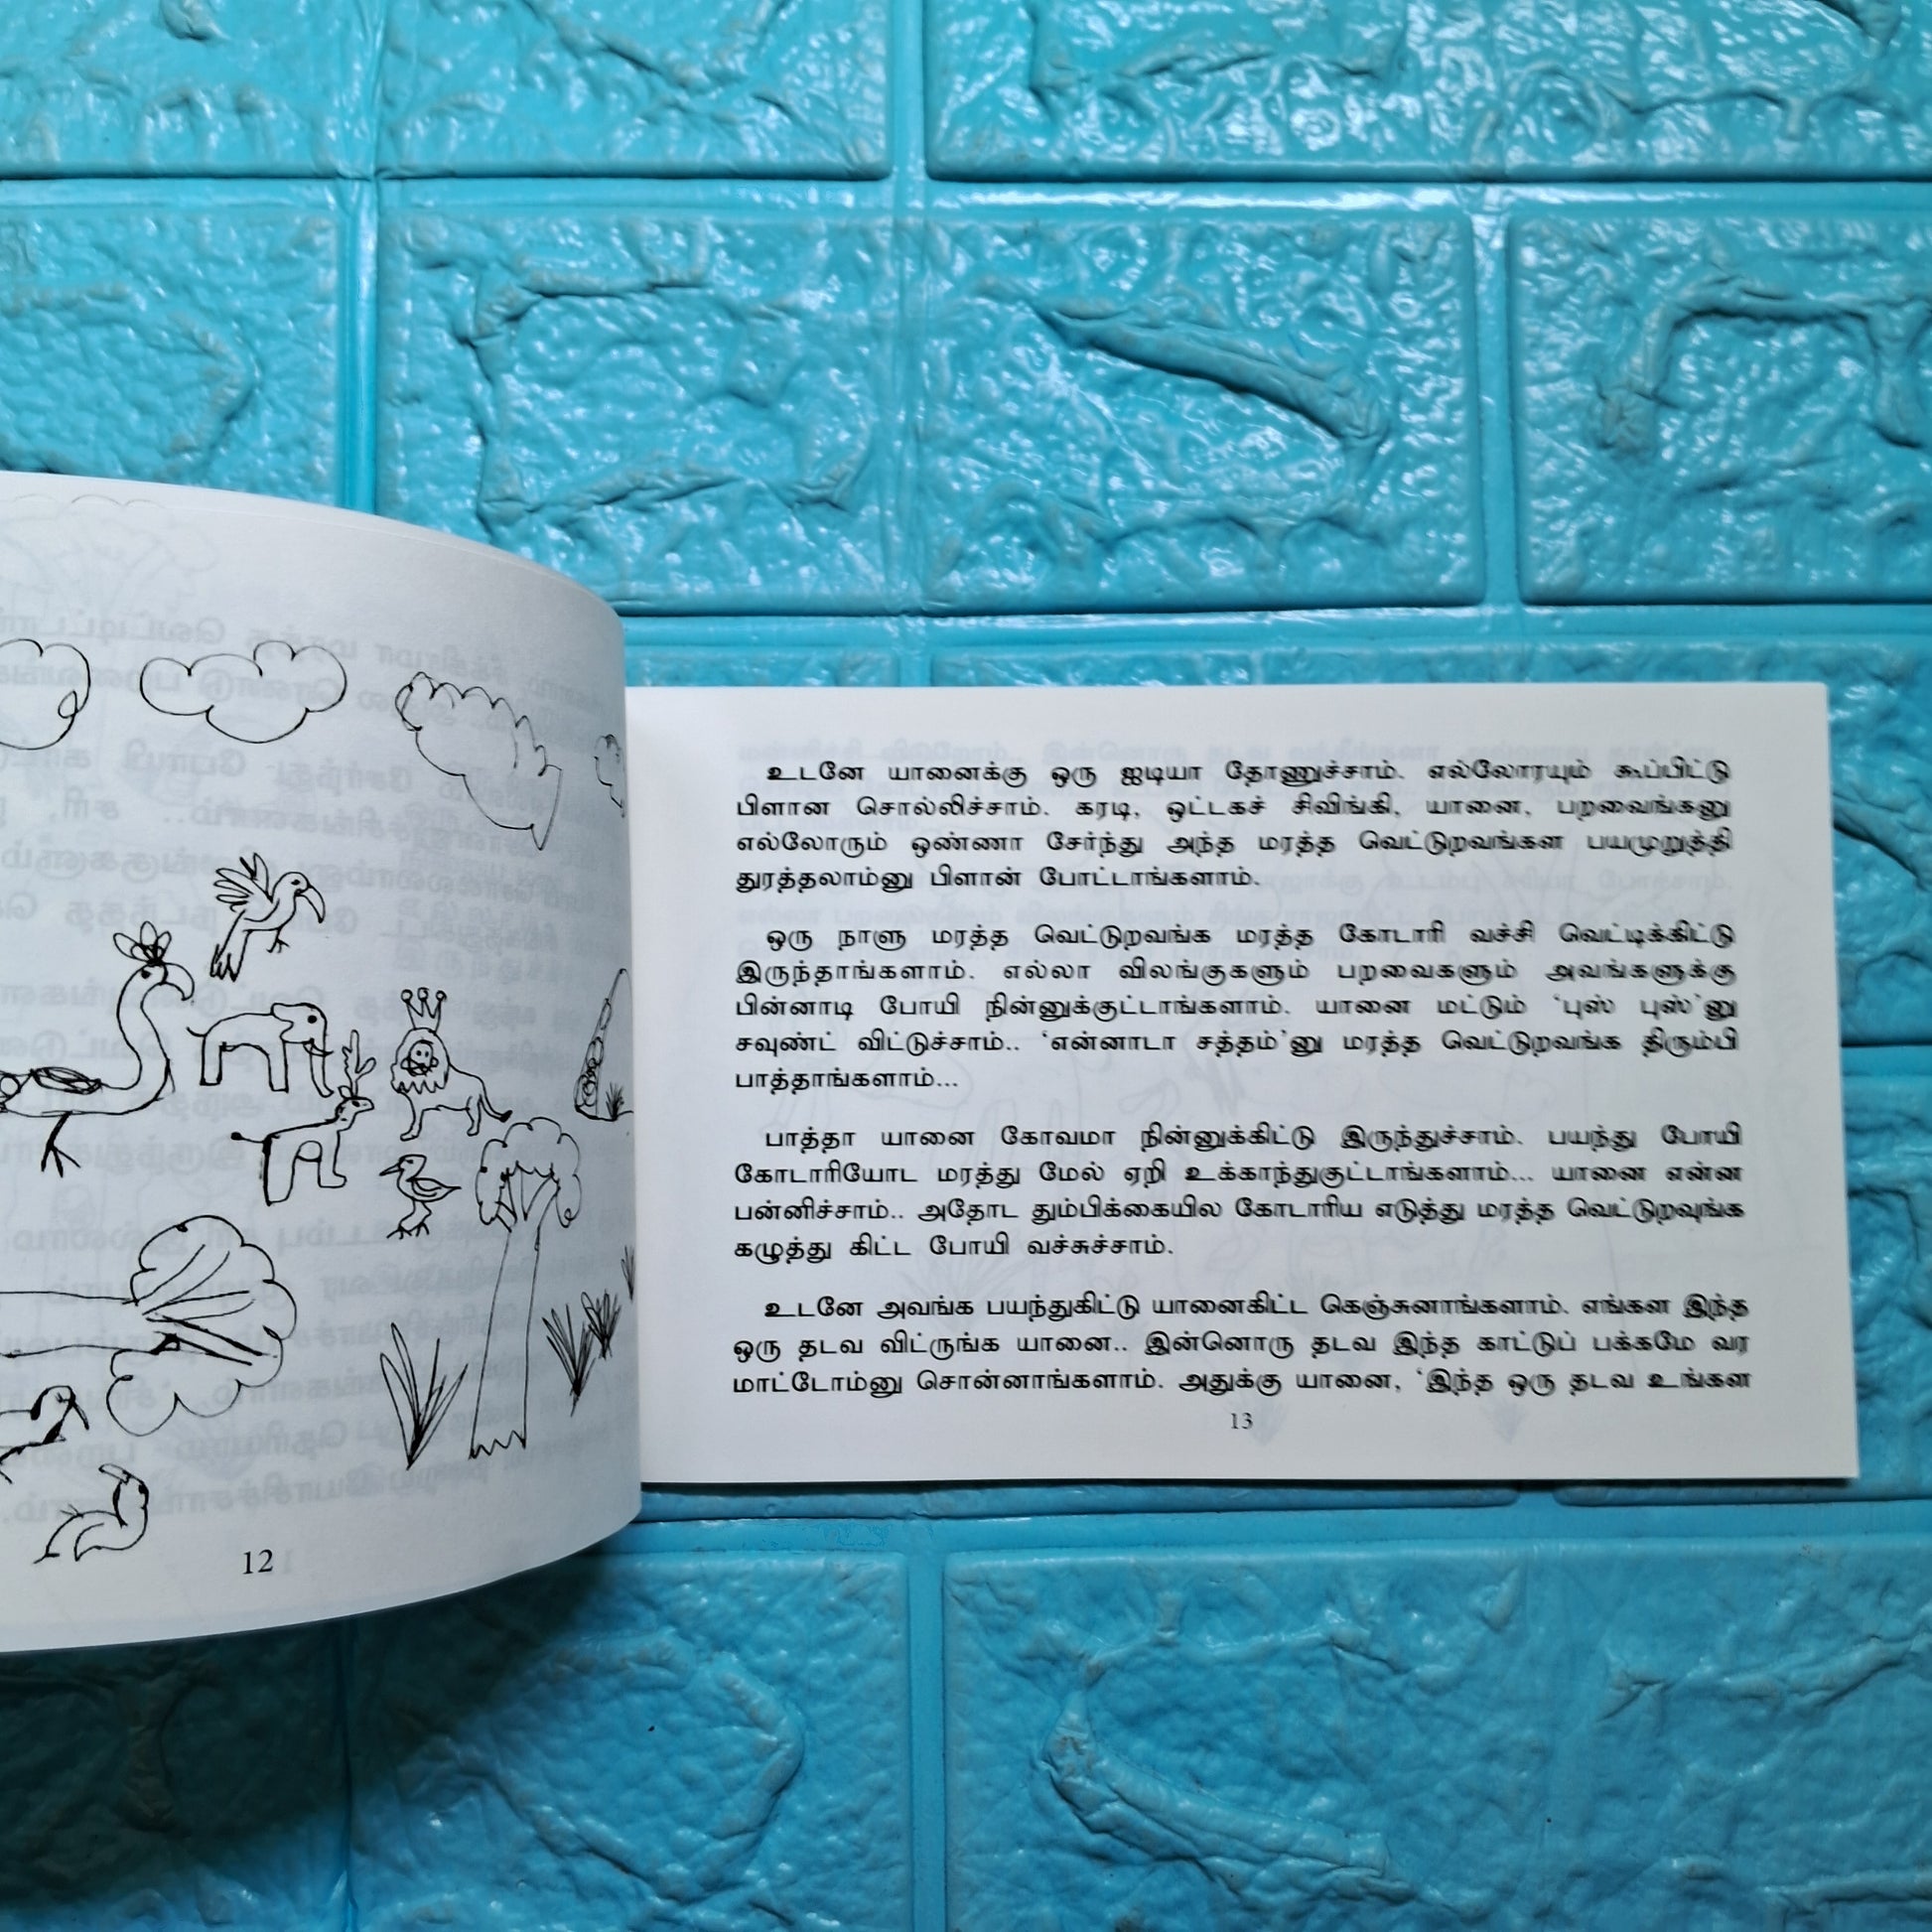 12
உடனே யானைக்கு ஒரு ஐடியா தோணுச்சாம். எல்லோரயும் கூப்பிட்டு
பிளான சொல்லிச்சாம். கரடி, ஒட்டகச் சிவிங்கி, யானை, பறவைங்கனு
எல்லோரும் ஒண்ணா சேர்ந்து அந்த மரத்த வெட்டுறவங்கள பயமுறுத்தி
துரத்தலாம்னு பிளான் போட்டாங்களாம்.
ஒரு நாளு மரத்த வெட்டுறவங்க மரத்த கோடாரி வச்சி வெட்டிக்கிட்டு
இருந்தாங்களாம். எல்லா விலங்குகளும் பறவைகளும் அவங்களுக்கு
பின்னாடி போயி நின்னுக்குட்டாங்களாம். யானை மட்டும் ‘புஸ் புஸ்’னு
சவுண்ட் விட்டுச்சாம்.. ‘என்னாடா சத்தம்’னு மரத்த வெட்டுறவங்க திரும்பி
பாத்தாங்களாம்...
பாத்தா யானை கோவமா நின்னுக்கிட்டு இருந்துச்சாம். பயந்து போயி
கோடாரியோட மரத்து மேல் ஏறி உக்காந்துகுட்டாங்களாம்... யானை என்ன
பன்னிச்சாம்.. அதோட தும்பிக்கையில கோடாரிய எடுத்து மரத்த வெட்டுறவுங்க
கழுத்து கிட்ட போயி வச்சுச்சாம்.
உடனே அவங்க பயந்துகிட்டு யானைகிட்ட கெஞ்சுனாங்களாம். எங்கள இந்த
ஒரு தடவ விட்ருங்க யானை.. இன்னொரு தடவ இந்த காட்டுப் பக்கமே வர
மாட்டோம்னு சொன்னாங்களாம். அதுக்கு யானை, ‘இந்த ஒரு தடவ உங்கள
13